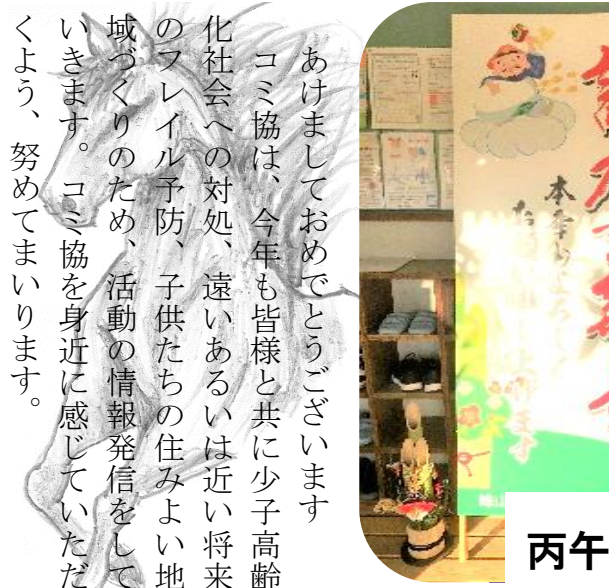 あけましておめでとうございます
コミ協は、今年も皆様と共に少子高齢
化社会への対処、遠いあるいは近い将来
のフレイル予防、子供たちの住みよい地
域づくりのため、活動の情報発信をして
いきます。コミ協を身近に感じていただ
くよう、努めてまいります。
本年もよろしく
丙午